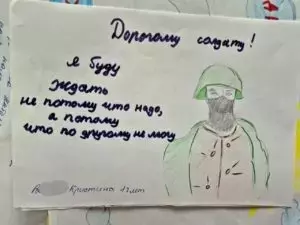 Дорогому солдату!
Я буду
ждать
не потому что надо,
а потому
что по другому не могу
Кристина 17 лет